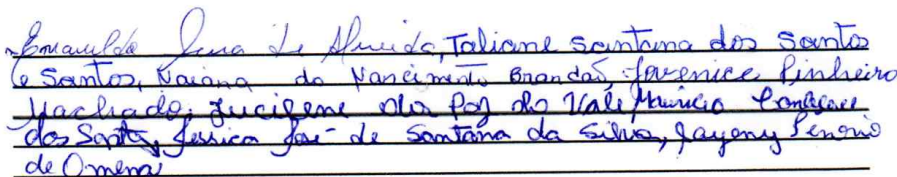 de Almeida, Taliane Santana dos Santos
e Santos, Naiana do Nascimento Brandão, Jovenice Pinheiro
Machado, Jucilene da Paz do Vale, Mauricio
dos Santos, Jessica José de Santana da Silva, Jayeny
de Omena